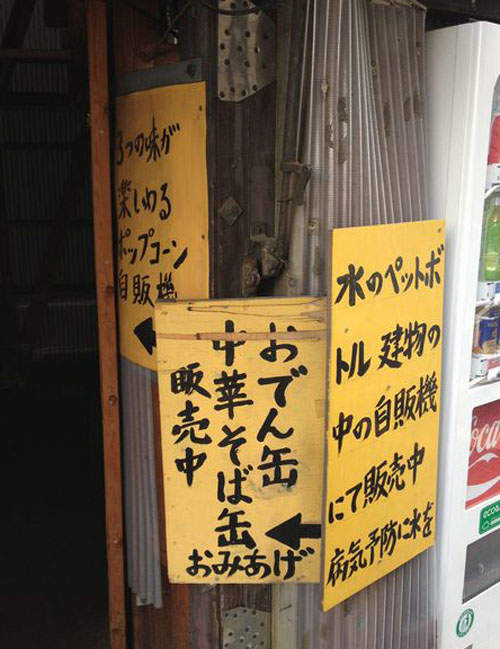 3つの味が
楽しめる
ポップコーン
自販機
おでん缶
中華そば缶
販売中
おみあげ
水のペットボ
トル 建物の
中の自販機
にて販売中
病気予防に水を
Coca
eco